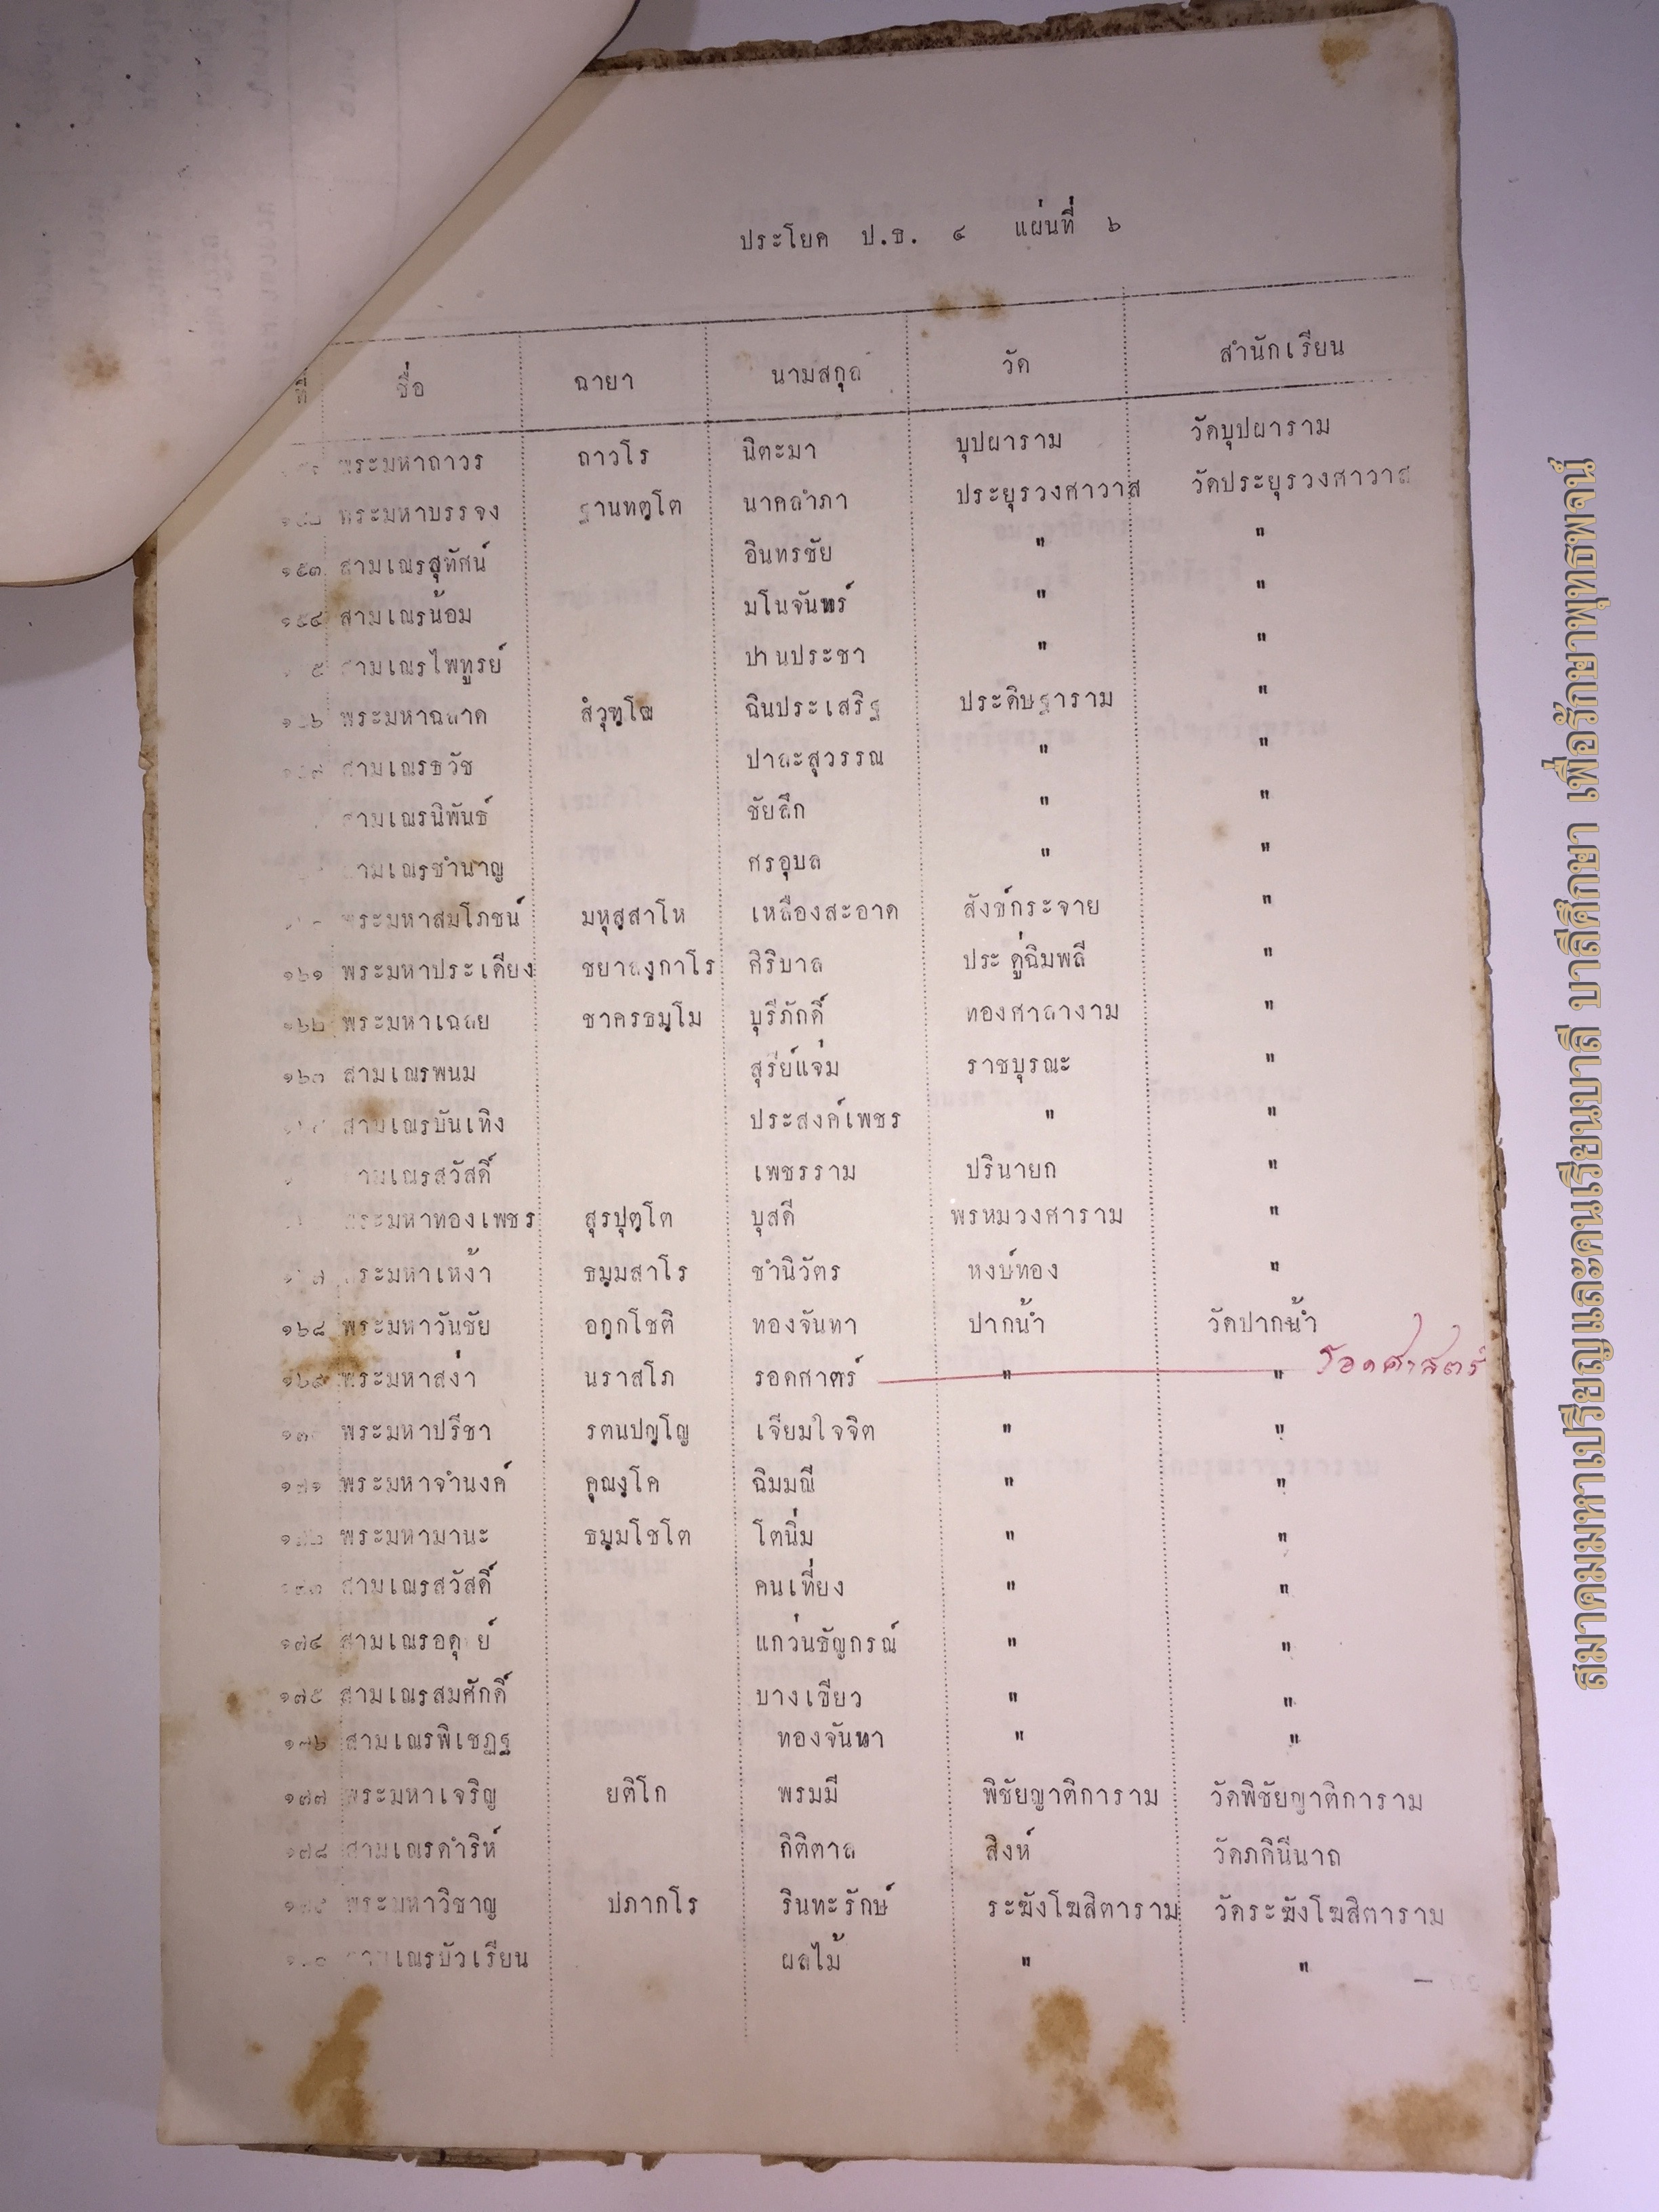 ประโยค ป.ธ. ๔ แผ่นที่ ๖
ที่ ชื่อ ฉายา นามสกุล วัด สำนักเรียน
พระมหาถาวร ถาวโร นิตะมา บุปผาราม วัดบุปผาราม
๑๕๒ พระมหาบรรจง ฐานทตฺโต นาคลำภา ประยุรวงศาวาส วัดประยุรวงศาวาส
๑๕๓ สามเณรสุทัศน์ อินทรชัย " "
๑๕๔ สามเณรน้อม มโนจันทร์ " "
๕ สามเณรไพฑูรย์ ปานประชา " "
๑๕๖ พระมหาฉลาด สํวุฑฺโฒ ฉินประเสริฐ ประดิษฐาราม "
๑๕๗ สามเณรธวัช ปาละสุวรรณ " "
สามเณรนิพันธ์ ชัยลึก " "
สามเณรชำนาญ ศรอุบล " "
พระมหาสมโภชน์ มหุสฺสาโห เหลืองสะอาด สังข์กระจาย "
๑๖๑ พระมหาประเดียง ชยาลงฺกาโร ศิริบาล ประดู่ฉิมพลี "
๑๖๒ พระมหาเฉลย ชาครธมฺโม บุรีภักดิ์ ทองศาลางาม "
๑๖๓ สามเณรพนม สุรีย์แจ่ม ราชบุรณะ "
สามเณรบันเทิง ประสงค์เพชร " "
สามเณรสวัสดิ์ เพชรราม ปรินายก "
พระมหาทองเพชร สุรปุตฺโต บุสดี พรหมวงศาราม "
พระมหาเหง้า ธมฺมสาโร ชำนิวัตร หงษ์ทอง "
๑๖๘ พระมหาวันชัย อคฺคโชติ ทองจันทา ปากน้ำ วัดปากน้ำ
๑๖๙ พระมหาสง่า นราสโภ รอดศาตร์ " " รอดศาสตร์
๑๗๐ พระมหาปรีชา รตนปญฺโญ เจียมใจจิต " "
๑๗๑ พระมหาจำนงค์ คุณงฺโค ฉิมมณี " "
๑๗๒ พระมหามานะ ธมฺมโชโต โตนิ่ม " "
๑๗๓ สามเณรสวัสดิ์ คนเที่ยง " "
๑๗๔ สามเณรอดุ ย์ แก่วนธัญกรณ์ " "
๑๗๕ สามเณรสมศักดิ์ บางเขียว " "
๑๗๖ สามเณรพิเชฏฐ ทองจันทา " "
๑๗๗ พระมหาเจริญ ยติโก พรมมี พิชัยญาติการาม วัดพิชัยญาติการาม
๑๗๘ สามเณรดำริห์ กิติตาล สิงห์ วัดภคินีนาถ
๑๗๙ พระมหาวิชาญ ปภากโร รินทะรักษ์ ระฆังโฆสิตาราม วัดระฆังโฆสิตาราม
๑๘๐ สามเณรบัวเรียน ผลไม้ " "
สมาคมมหาเปรียญและคนเรียนบาลี บาลีศึกษา เพื่อรักษาพุทธพจน์